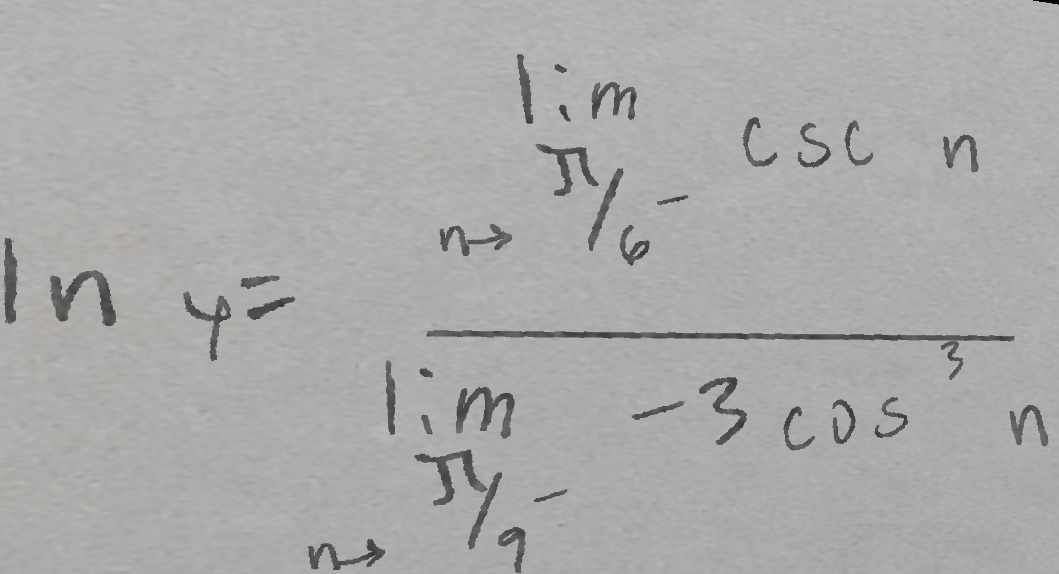 ln y = \frac{\lim_{n \to \pi/6^-} \csc n}{\lim_{n \to \pi/9^-} -3 \cos^3 n}